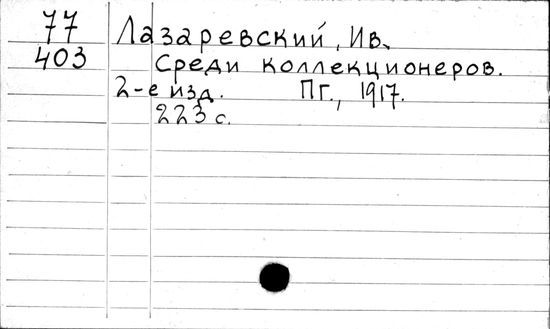 77
403
Лазаревский, Ив.
Среди коллекционеров.
2-е изд. Пг., 1917.
223 с.